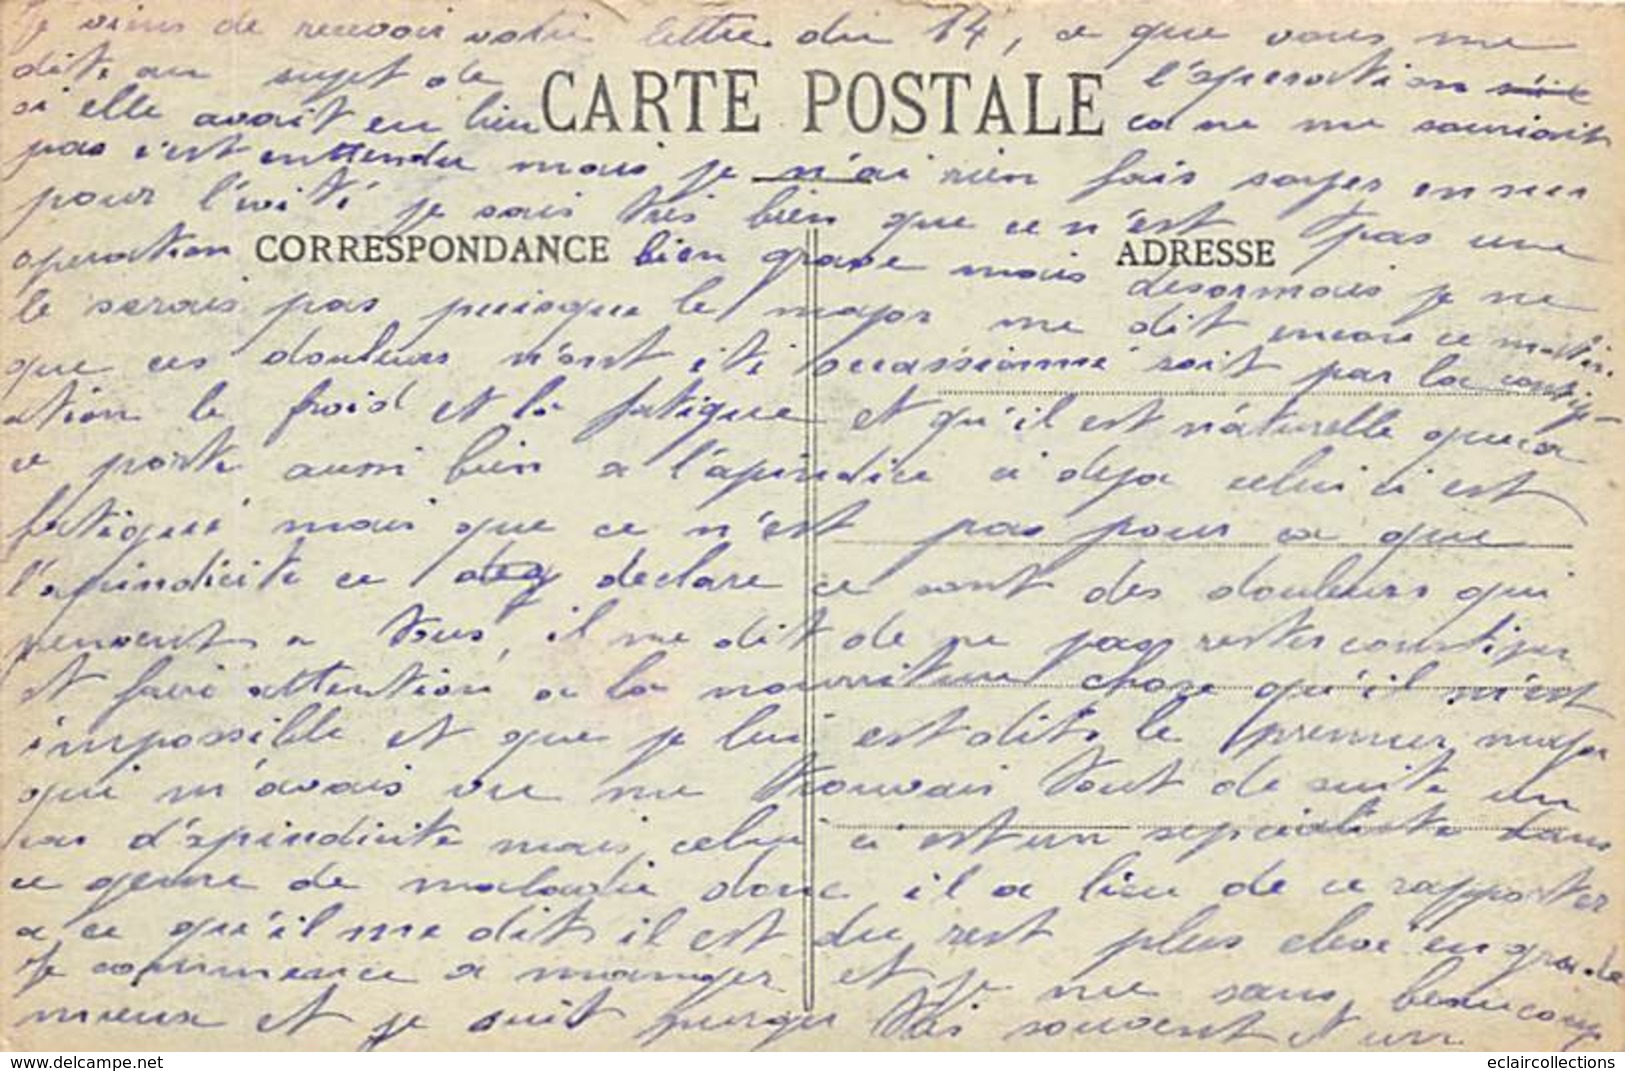 Je viens de recevoir votre lettre du 14, ce que vous me
dite au sujet de l'operation
si elle avait eu lieu ca ne me souriait
CARTE POSTALE
pas c'est enttendu mais je n'ai rien fais soyes en sur
pour l'évité je sais très bien que ce n'est pas une
operation bien grave mais desormais je ne
CORRESPONDANCE ADRESSE
le serais pas puisque le major me dit encore ce matin
que ces douleurs n'ont été occassionné soit par la constip-
ation le froid et la fatigue et qu'il est naturelle que ca
ce porte aussi bien a l'apindice si deja celui ci est
fatigué mais que ce n'est pas pour ca que
l'apindicite ce declare ce sont des douleurs qui
viennent a tous, il me dit de ne pas rester constiper
et faire attention a la nourriture chose qu'il m'est
impossible et que je lui est dits le premier major
qui m'avais vu me trouvais tout de suite un
cas d'apindicite mais celui ci est un sepcialiste dans
ce genre de maladie donc il a lieu de ce rapporter
a ce qu'il me dit il est du rest plus elevé en grade
Je commence a manger et je me sans beaucoup
mieux et je suit purger très souvent et un
eclaircollections
www.delcampe.net